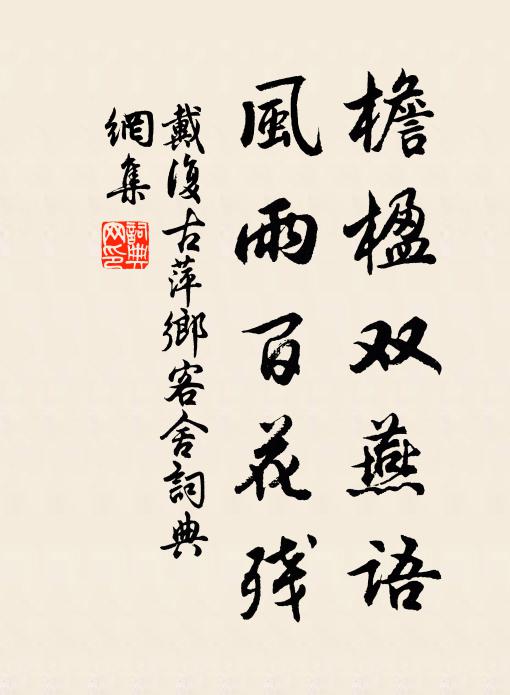 檐楹双燕語
風雨百花残
戴復古萍鄉客舍詞典
網集
詞典网印